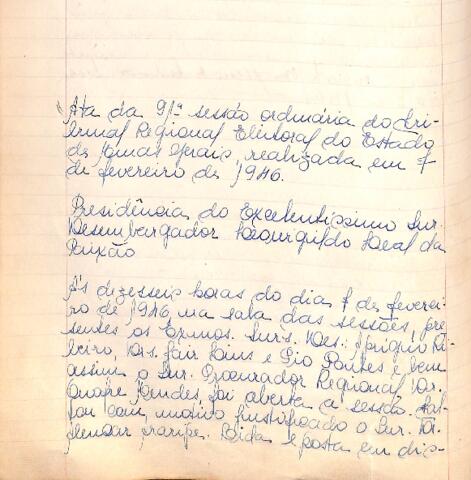 Ata da 91ª sessão ordinária do Tri-
bunal Regional Eleitoral do Estado
de Minas Gerais, realizada em 7
de fevereiro de 1946.
Presidência do Excelentíssimo Snr.
Desembargador Leal da
Paixão
Ás dezesseis horas do dia 7 de feverei-
ro de 1946, na sala das sessões, pre
sentes os Exmos. Snrs. Des. Ri-
beiro, Drs. Jair Lins e Pio Pontes e bem
assim o Snr. Procurador Regional Dr.
Onofre Mendes, foi aberta a sessão. Fal-
tou com motivo justificado o Snr. Dr.
Lida e posta em dis-